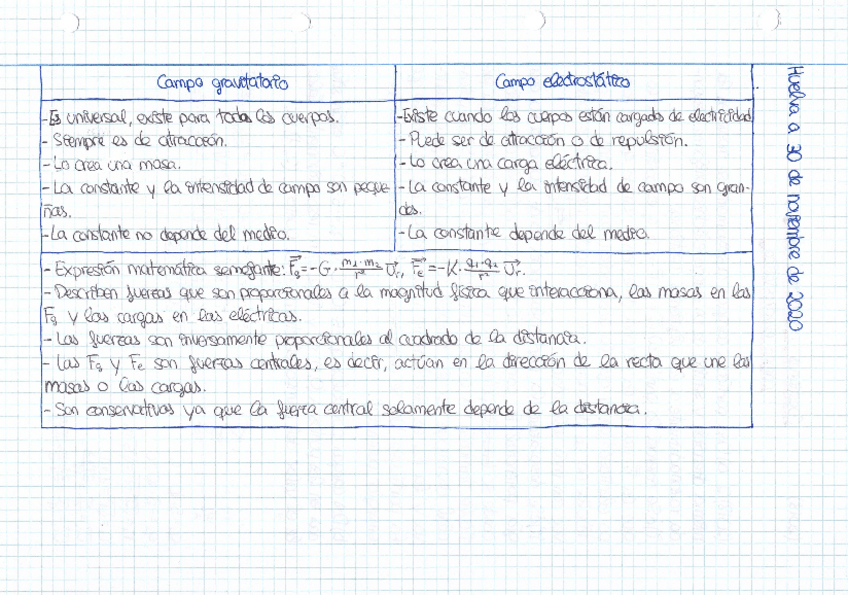 Campo gravitatorio
Campo electrostático
- Es universal, existe para todos los cuerpos.
- Siempre es de atracción.
- Lo crea una masa.
- La constante y la intensidad de campo son peque
ñas.
- La constante no depende del medio.
- Existe cuando los cuerpos están cargados de electricidad
- Puede ser de atracción o de repulsión.
- Lo crea una carga eléctrica.
- La constante y la intensidad de campo son gran-
des.
- La constante depende del medio.
- Expresión matemática semejante: F⃗g = -G · m₁·m₂/r² U⃗r, F⃗e = -K · q₁·q₂/r² U⃗r.
- Describen fuerzas que son proporcionales a la magnitud física que interacciona, las masas en las
Fg y las cargas en las eléctricas.
- Las fuerzas son inversamente proporcionales al cuadrado de la distancia.
- Las Fg y Fe son fuerzas centrales, es decir, actúan en la dirección de la recta que une las
masas o las cargas.
- Son conservativas ya que la fuerza central solamente depende de la distancia.
Huelva a 30 de noviembre de 2020